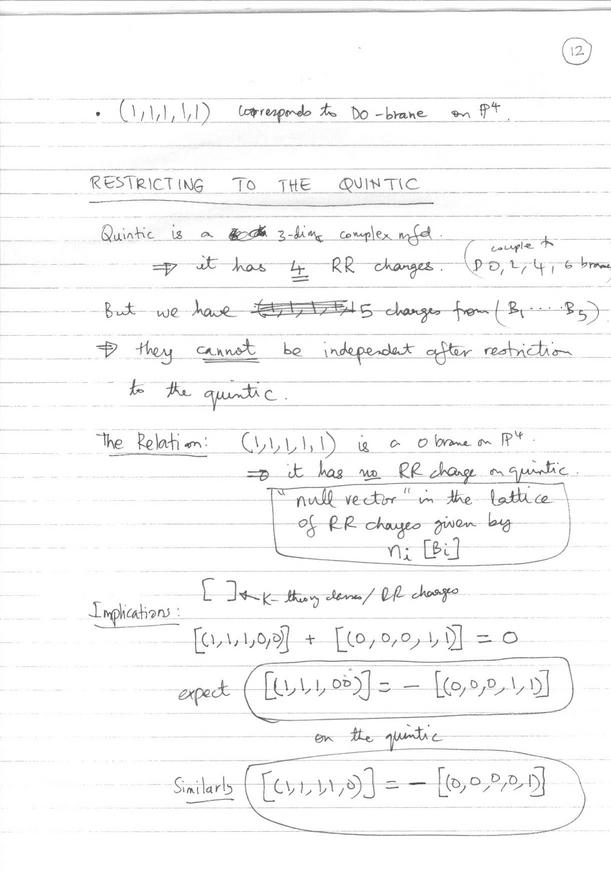 12
• (1,1,1,1,1) corresponds to D0-brane on ℙ⁴.
RESTRICTING TO THE QUINTIC
Quintic is a 3-dim_ℂ complex mfd.
⇒ it has 4 RR charges. (couple to
D0,2,4,6 brane
But we have 5 charges from (B₁ ····· B₅)
⇒ they cannot be independent after restriction
to the quintic.
The Relation: (1,1,1,1,1) is a 0 brane on ℙ⁴.
⇒ it has no RR charge on quintic.
"null vector" in the lattice
of RR charges given by
nᵢ [Bᵢ]
[ ] ← K-theory classes / RR charges
Implications:
[(1,1,1,0,0)] + [(0,0,0,1,1)] = 0
expect [(1,1,1,0,0)] = − [(0,0,0,1,1)]
on the quintic
Similarly [(1,1,1,1,0)] = − [(0,0,0,0,1)]